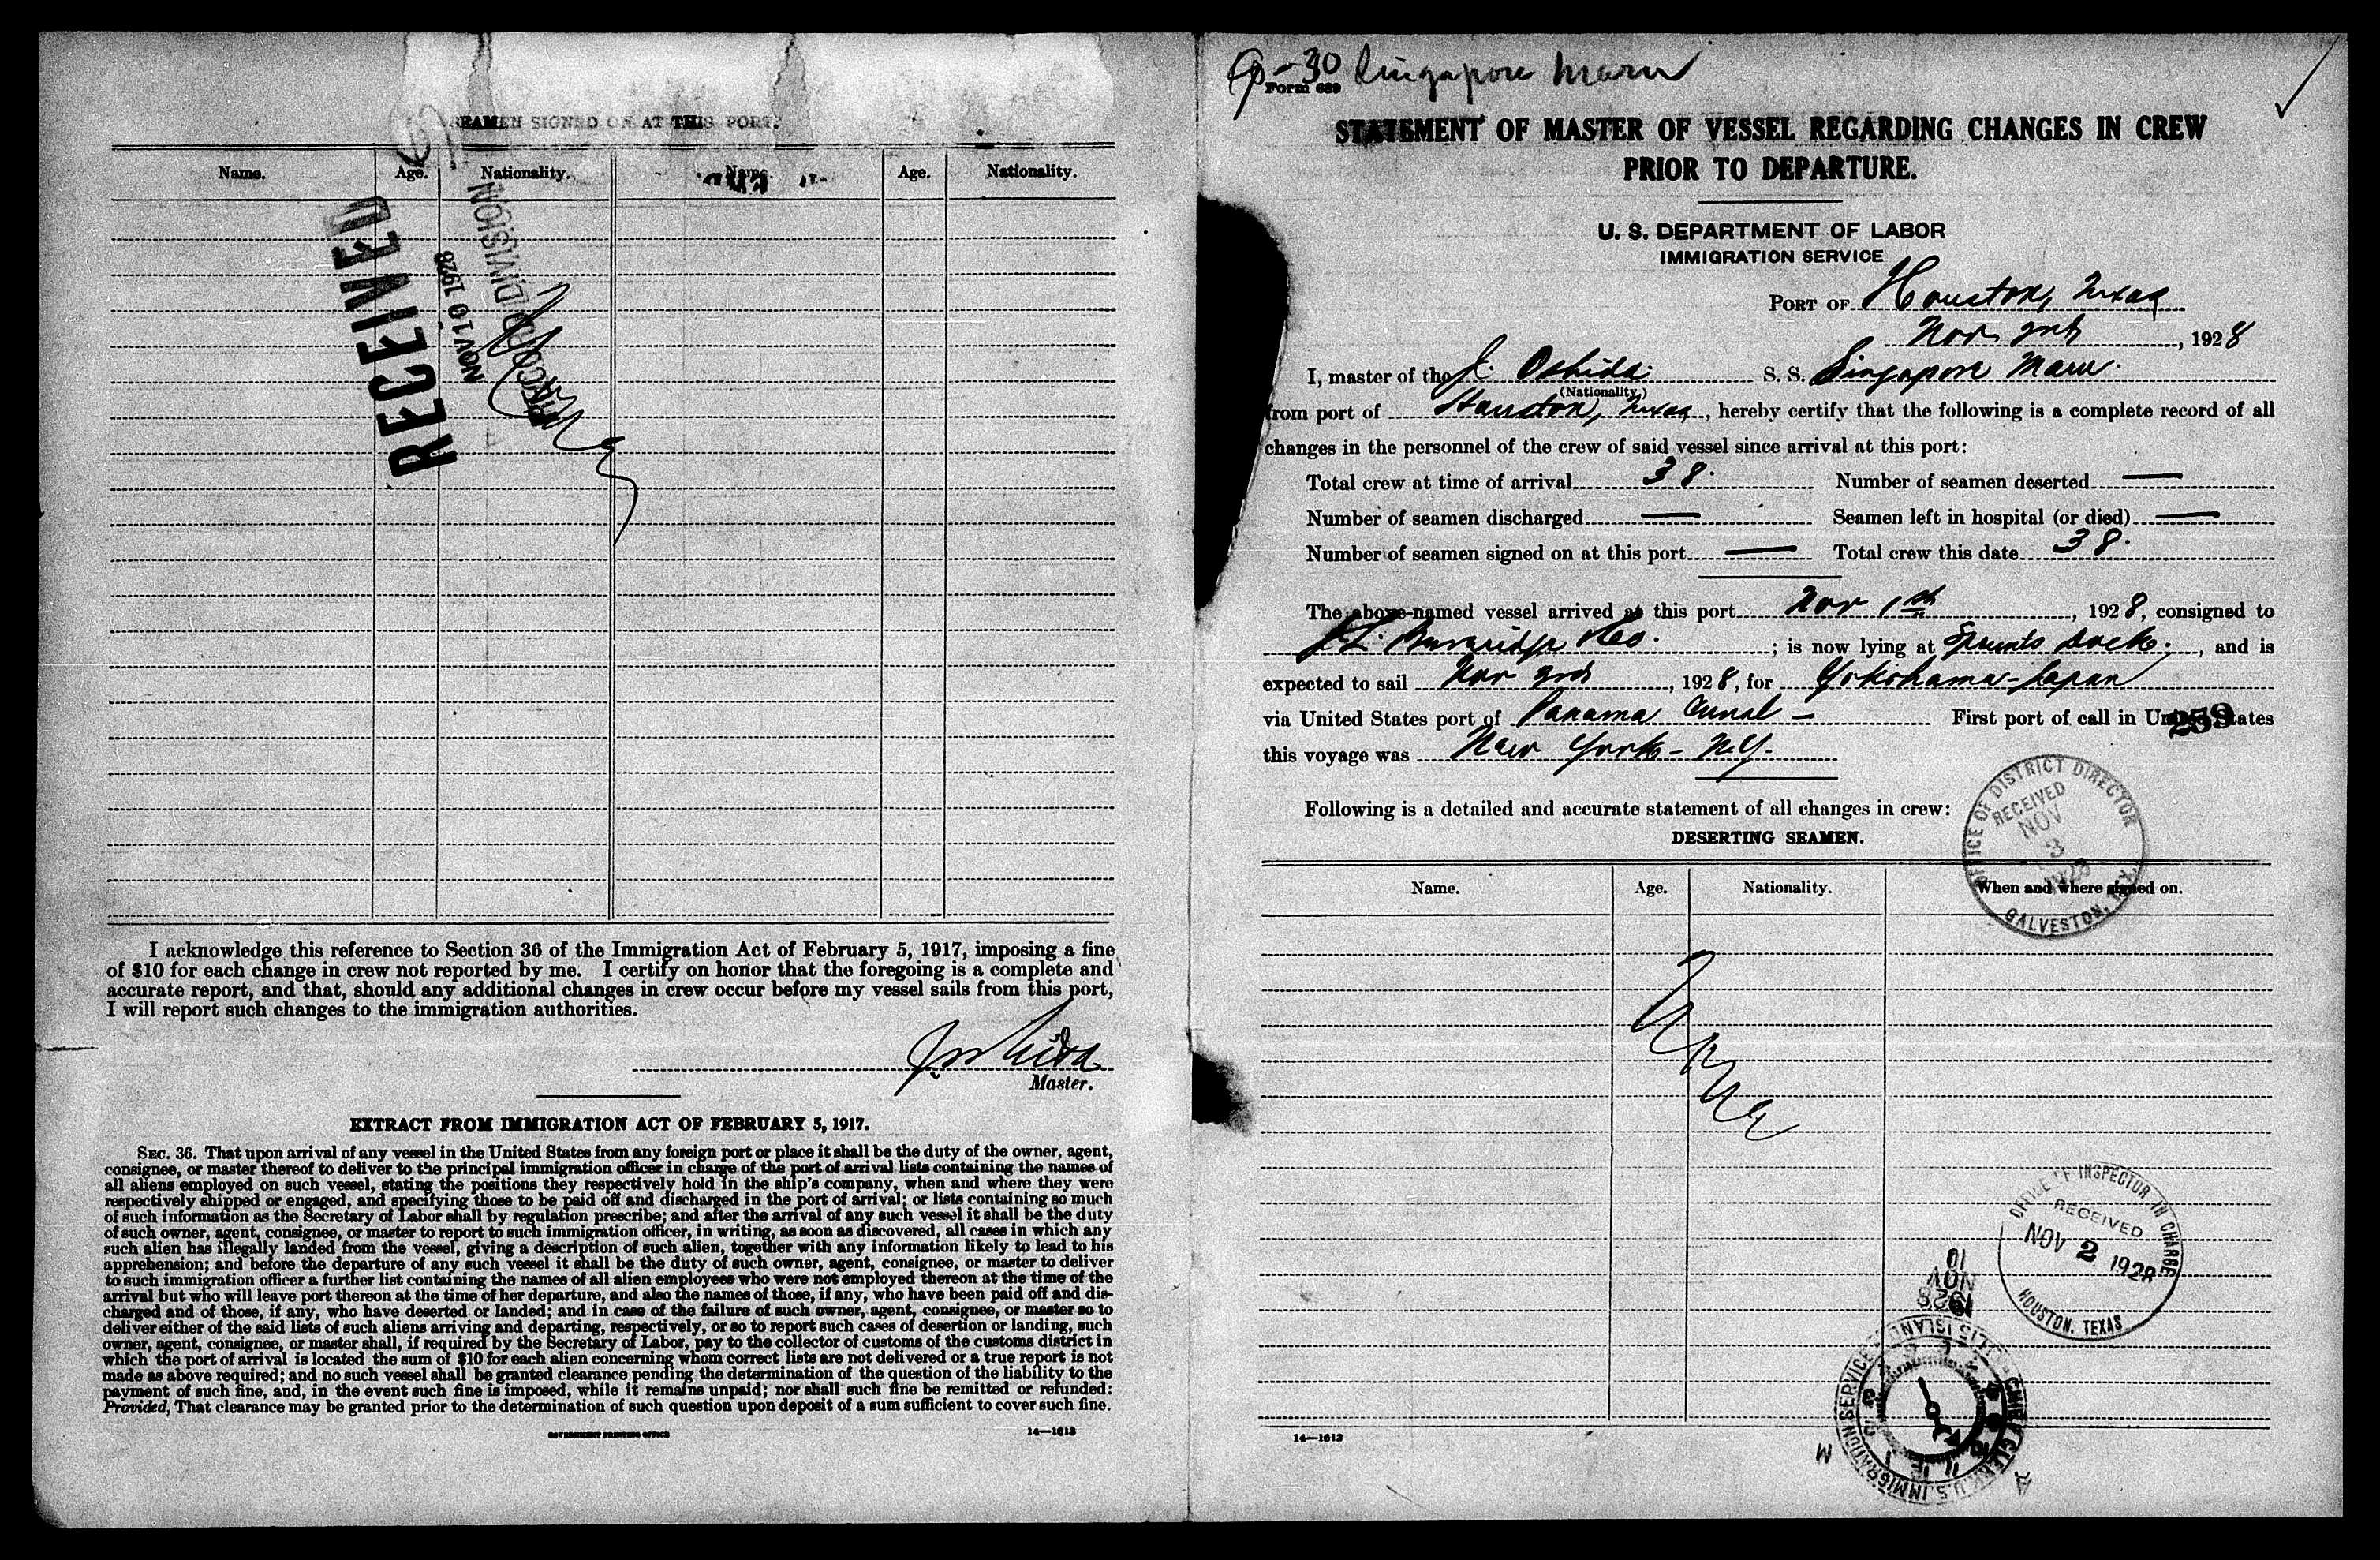 SEAMEN SIGNED ON AT THIS PORT.
Name. Age. Nationality. Name. Age. Nationality.
RECEIVED
NOV 10 1928
RECORD DIVISION
I acknowledge this reference to Section 36 of the Immigration Act of February 5, 1917, imposing a fine
of $10 for each change in crew not reported by me. I certify on honor that the foregoing is a complete and
accurate report, and that, should any additional changes in crew occur before my vessel sails from this port,
I will report such changes to the immigration authorities.
Master.
EXTRACT FROM IMMIGRATION ACT OF FEBRUARY 5, 1917.
SEC. 36. That upon arrival of any vessel in the United States from any foreign port or place it shall be the duty of the owner, agent,
consignee, or master thereof to deliver to the principal immigration officer in charge of the port of arrival lists containing the names of
all aliens employed on such vessel, stating the positions they respectively hold in the ship's company, when and where they were
respectively shipped or engaged, and specifying those to be paid off and discharged in the port of arrival; or lists containing so much
of such information as the Secretary of Labor shall by regulation prescribe; and after the arrival of any such vessel it shall be the duty
of such owner, agent, consignee, or master to report to such immigration officer, in writing, as soon as discovered, all cases in which any
such alien has illegally landed from the vessel, giving a description of such alien, together with any information likely to lead to his
apprehension; and before the departure of any such vessel it shall be the duty of such owner, agent, consignee, or master to deliver
to such immigration officer a further list containing the names of all alien employees who were not employed thereon at the time of the
arrival but who will leave port thereon at the time of her departure, and also the names of those, if any, who have been paid off and dis-
charged and of those, if any, who have deserted or landed; and in case of the failure of such owner, agent, consignee, or master so to
deliver either of the said lists of such aliens arriving and departing, respectively, or so to report such cases of desertion or landing, such
owner, agent, consignee, or master shall, if required by the Secretary of Labor, pay to the collector of customs of the customs district in
which the port of arrival is located the sum of $10 for each alien concerning whom correct lists are not delivered or a true report is not
made as above required; and no such vessel shall be granted clearance pending the determination of the question of the liability to the
payment of such fine, and, in the event such fine is imposed, while it remains unpaid; nor shall such fine be remitted or refunded:
Provided, That clearance may be granted prior to the determination of such question upon deposit of a sum sufficient to cover such fine.
GOVERNMENT PRINTING OFFICE 14—1613
30 Singapore Maru
Form 689
STATEMENT OF MASTER OF VESSEL REGARDING CHANGES IN CREW
PRIOR TO DEPARTURE.
U. S. DEPARTMENT OF LABOR
IMMIGRATION SERVICE
PORT OF Houston, Texas
Nov 2nd, 1928
I, master of the J. Oshida S. S. Singapore Maru.
(Nationality.)
from port of Houston, Texas, hereby certify that the following is a complete record of all
changes in the personnel of the crew of said vessel since arrival at this port:
Total crew at time of arrival 38. Number of seamen deserted —
Number of seamen discharged — Seamen left in hospital (or died) —
Number of seamen signed on at this port — Total crew this date 38.
The above-named vessel arrived at this port Nov 1st, 1928, consigned to
Co.; is now lying at Sprunts Dock., and is
expected to sail Nov 3rd, 1928, for Yokohama - Japan
via United States port of Panama Canal — First port of call in United States
259
this voyage was New York - N.Y.
Following is a detailed and accurate statement of all changes in crew:
DESERTING SEAMEN.
OFFICE OF DISTRICT DIRECTOR
RECEIVED
NOV
3
1928
GALVESTON, TEX.
Name. Age. Nationality. When and where signed on.
None
OFFICE OF INSPECTOR IN CHARGE
RECEIVED
NOV 2 1928
HOUSTON, TEXAS
10
NOV
1928
U.S. IMMIGRATION SERVICE ELLIS ISLAND CHIEF CLERK
M A
14—1613